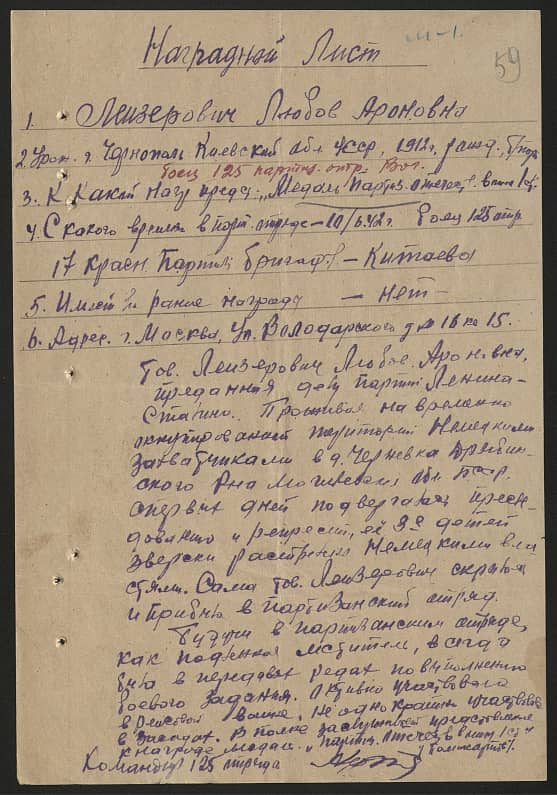 Наградной Лист
59
1. Лейзерович Любов Ароновна
2. г. Чернополь Киевский обл УССР, 1912 г
боец 125 партиз. отр.
3. К Какой предс. "Медал Партиз отечест. 1 ст.
4. С какого времени в парт отряде — 10/6.42 г. боец 125 отр
17 Красн. Партиз бригады — Китаева
5. Имеет ли ранее награду — нет —
6. Адрес г. Москва, Ул. Володарского д № 16 кв 15.
Тов. Лейзерович Любов. Ароновна,
преданная делу партии Ленина-
Сталина. Проживая на временно
оккупированной територий Немецкими
захватчиками в д. Черневка Дрибин-
ского Р-на Могилевской обл. БССР.
с первых дней подвергалась пресле-
дованию и репресий, её 3е детей
зверски растреляны Немецкими вла-
стями. Сама тов. Лейзерович скрылась
и прибыла в партизанский отряд.
Будучи в партизанском отряде,
как мститель, всегда
была в передовых рядах по выполнению
боевого задания. Активно участвовала
в войне. Неоднократно участвовала
в засадах. В полне заслуживает представления
к награде медали "Партиз. отечеств 1 ст"
Командир 125 отряда